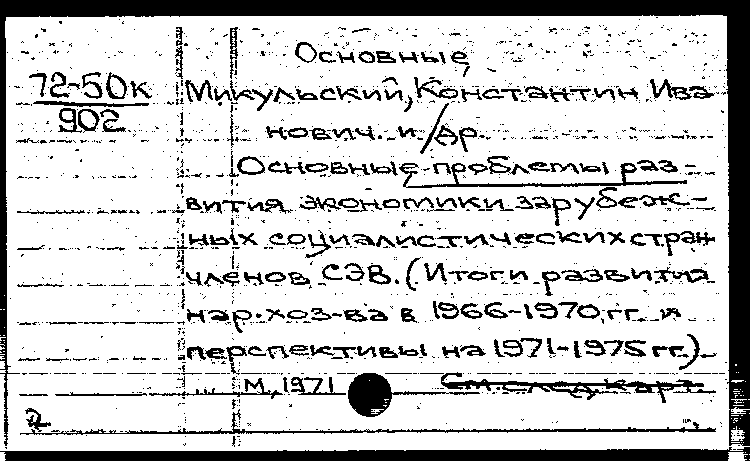 Основные
72-50к
902
Микульский, Константин Ива
нович. и др.
Основные проблемы раз-
вития экономики зарубеж-
ных социалистических стран
членов СЭВ. (Итоги развития
нар. хоз-ва в 1966-1970 гг. и
перспективы на 1971-1975 гг.)
... М., 1971 См. след. карт.
2